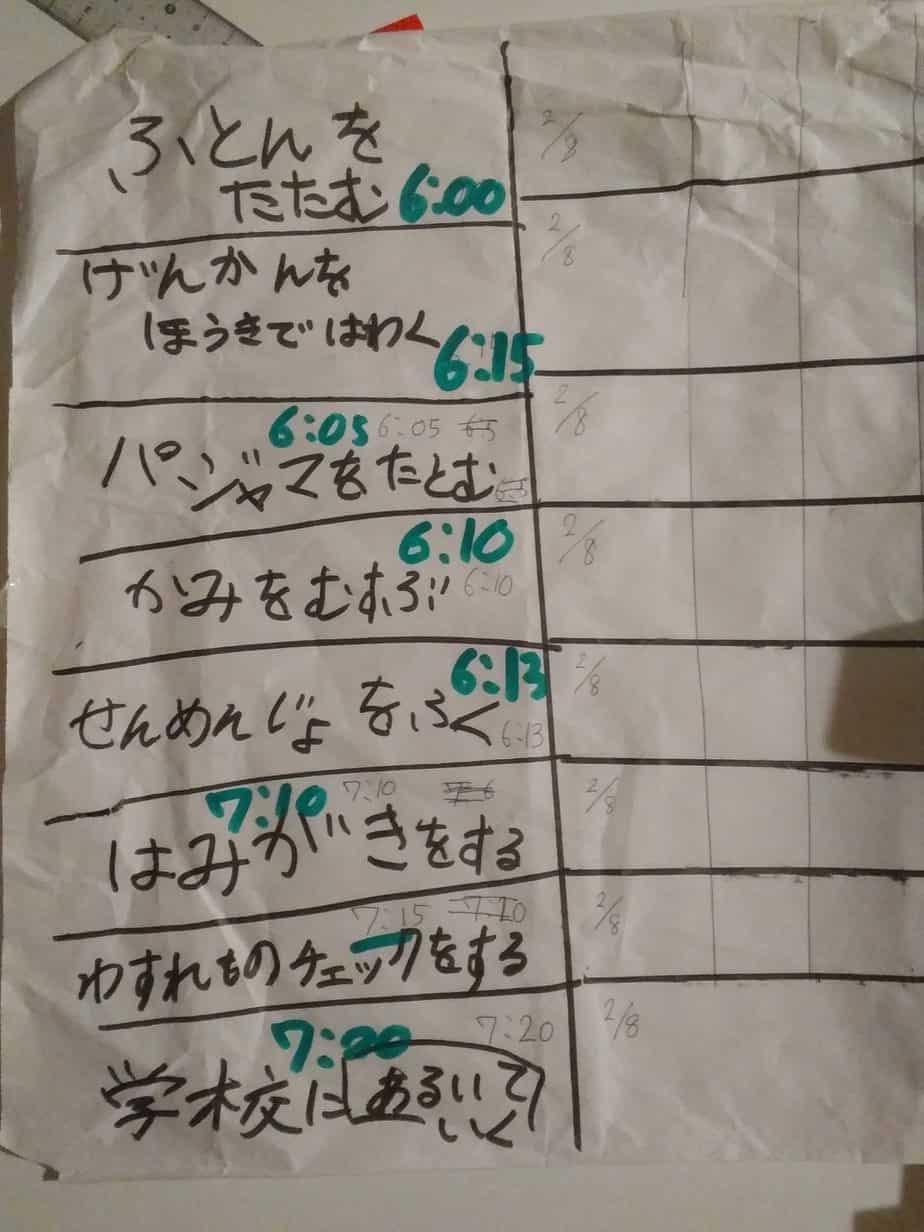 ふとんを
たたむ 6:00
2/8
げんかんを
ほうきではわく 6:15
2/8
6:05 6:05 6:5
パジャマをたとむ
2/8
6:10
かみをむすぶ 6:10
2/8
6:13
せんめんじょをふく 6:13
2/8
7:10 7:10
はみがきをする
2/8
7:15 7:20
わすれものチェックをする
2/8
7:20 7:20
学校にあるいて
いく
2/8